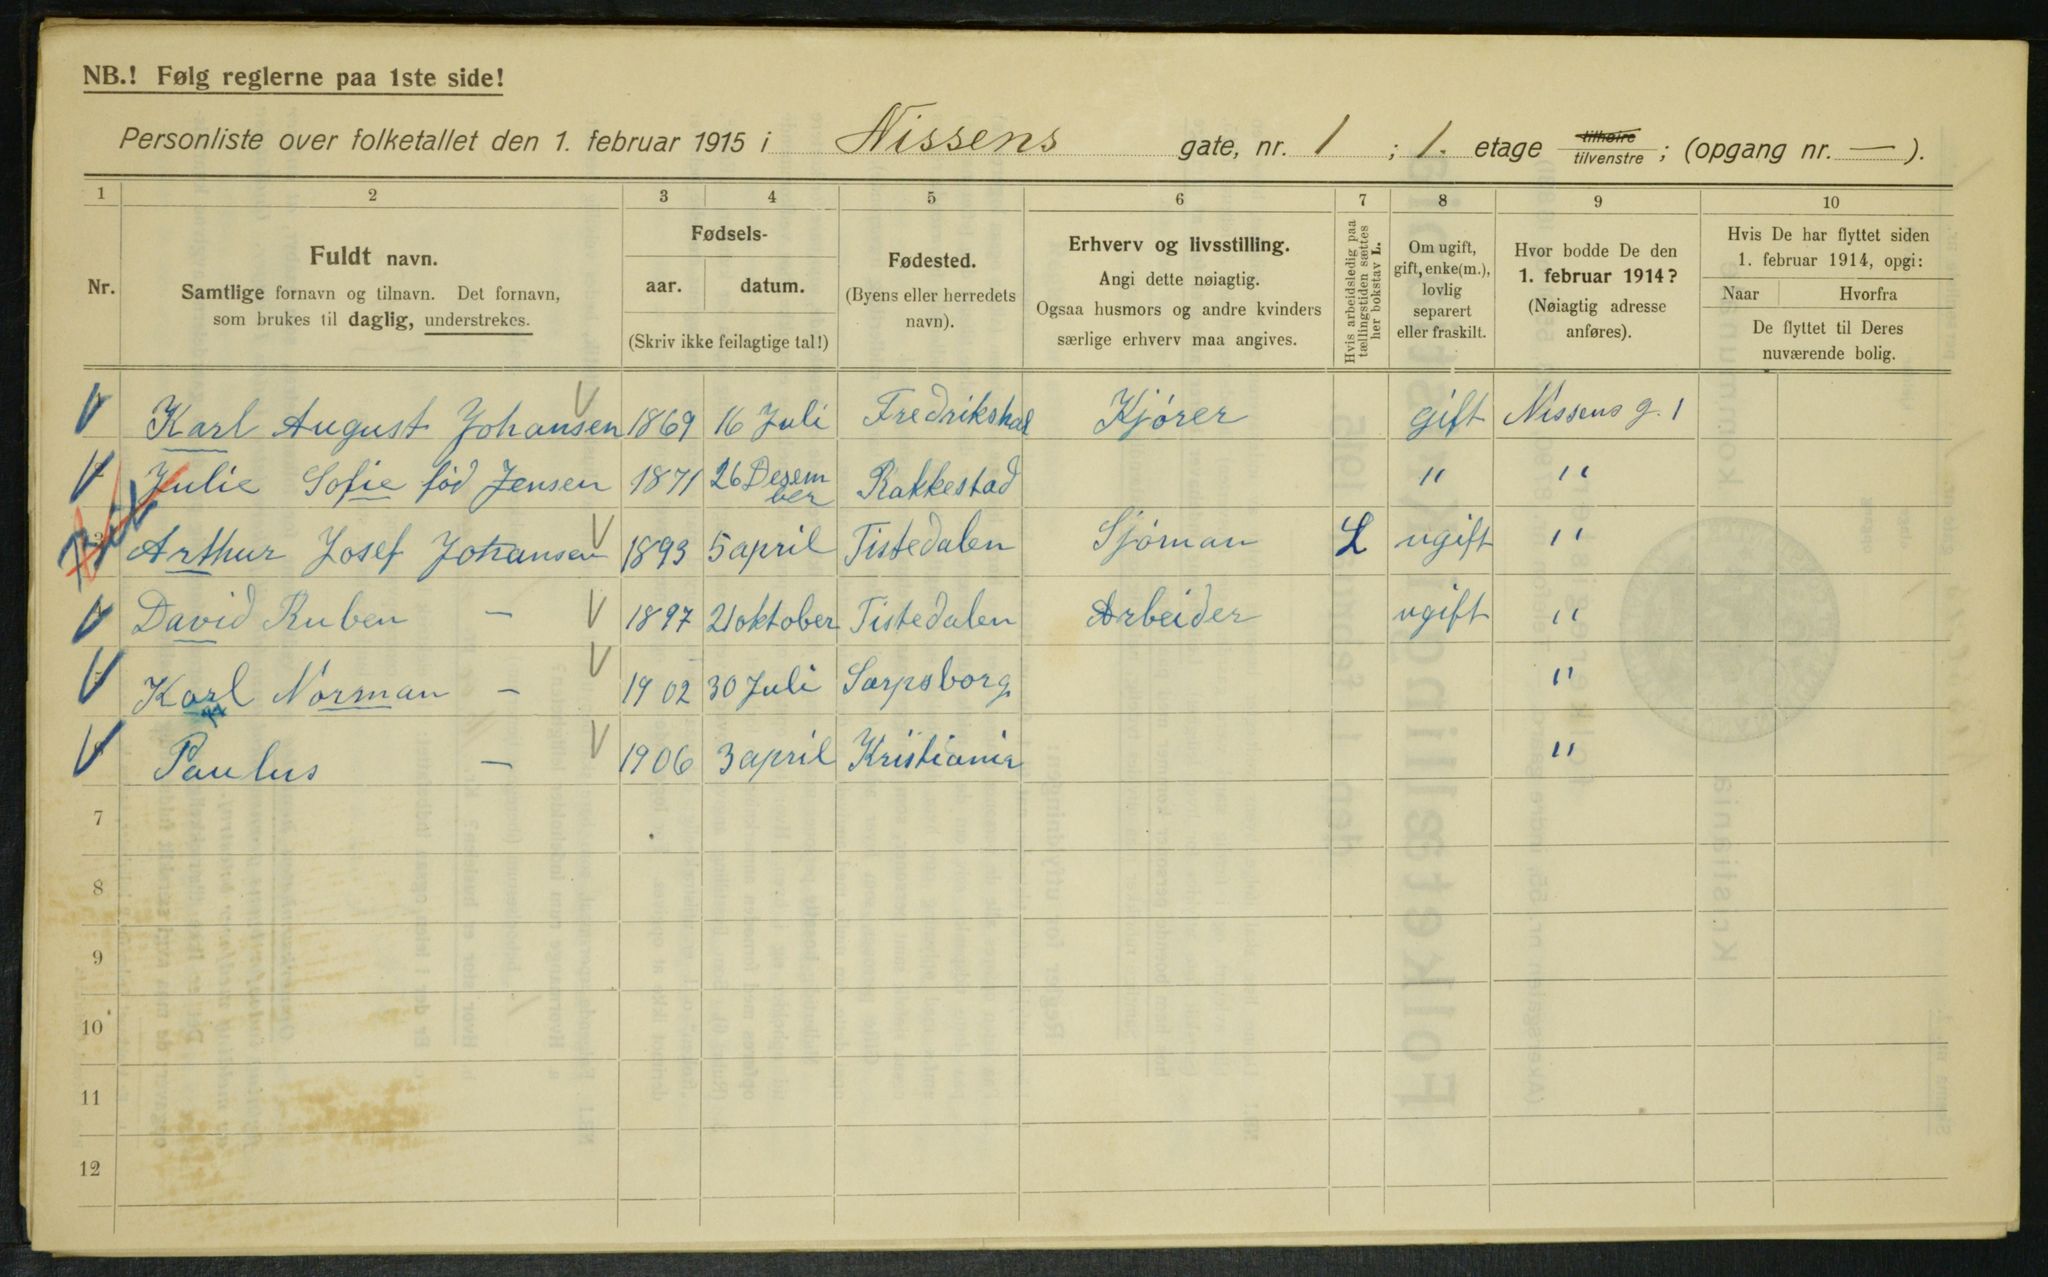 NB.! Følg reglerne paa 1ste side!
Personliste over folketallet den 1. februar 1915 i Nissens gate, nr. 1 ; 1. etage tilhøire tilvenstre ; (opgang nr. — ).
1 2 3 4 5 6 7 8 9 10
Nr.
Fuldt navn.
Samtlige fornavn og tilnavn. Det fornavn,
som brukes til daglig, understrekes.
Fødsels-
aar. datum.
(Skriv ikke feilagtige tal!)
Fødested.
(Byens eller herredets
navn).
Erhverv og livsstilling.
Angi dette nøiagtig.
Ogsaa husmors og andre kvinders
særlige erhverv maa angives.
Hvis arbeidsledig paa
tællingstiden sættes
her bokstav L.
Om ugift,
gift, enke(m.),
lovlig
separert
eller fraskilt.
Hvor bodde De den
1. februar 1914?
(Nøiagtig adresse
anføres).
Hvis De har flyttet siden
1. februar 1914, opgi:
Naar Hvorfra
De flyttet til Deres
nuværende bolig.
Karl August Johansen 1869 16 Juli Fredrikshal Kjører gift Nissens g. 1
Julie Sofie fød Jensen 1871 26 Desem
ber Rakkestad " "
3 Arthur Josef Johansen 1893 5 april Tistedalen Sjøman L ugift "
David Ruben — 1897 21 oktober Tistedalen Arbeider ugift "
Karl Norman — 1902 30 Juli Sarpsborg "
Paulus — 1906 3 april Kristiania "
7
8
9
10
11
12